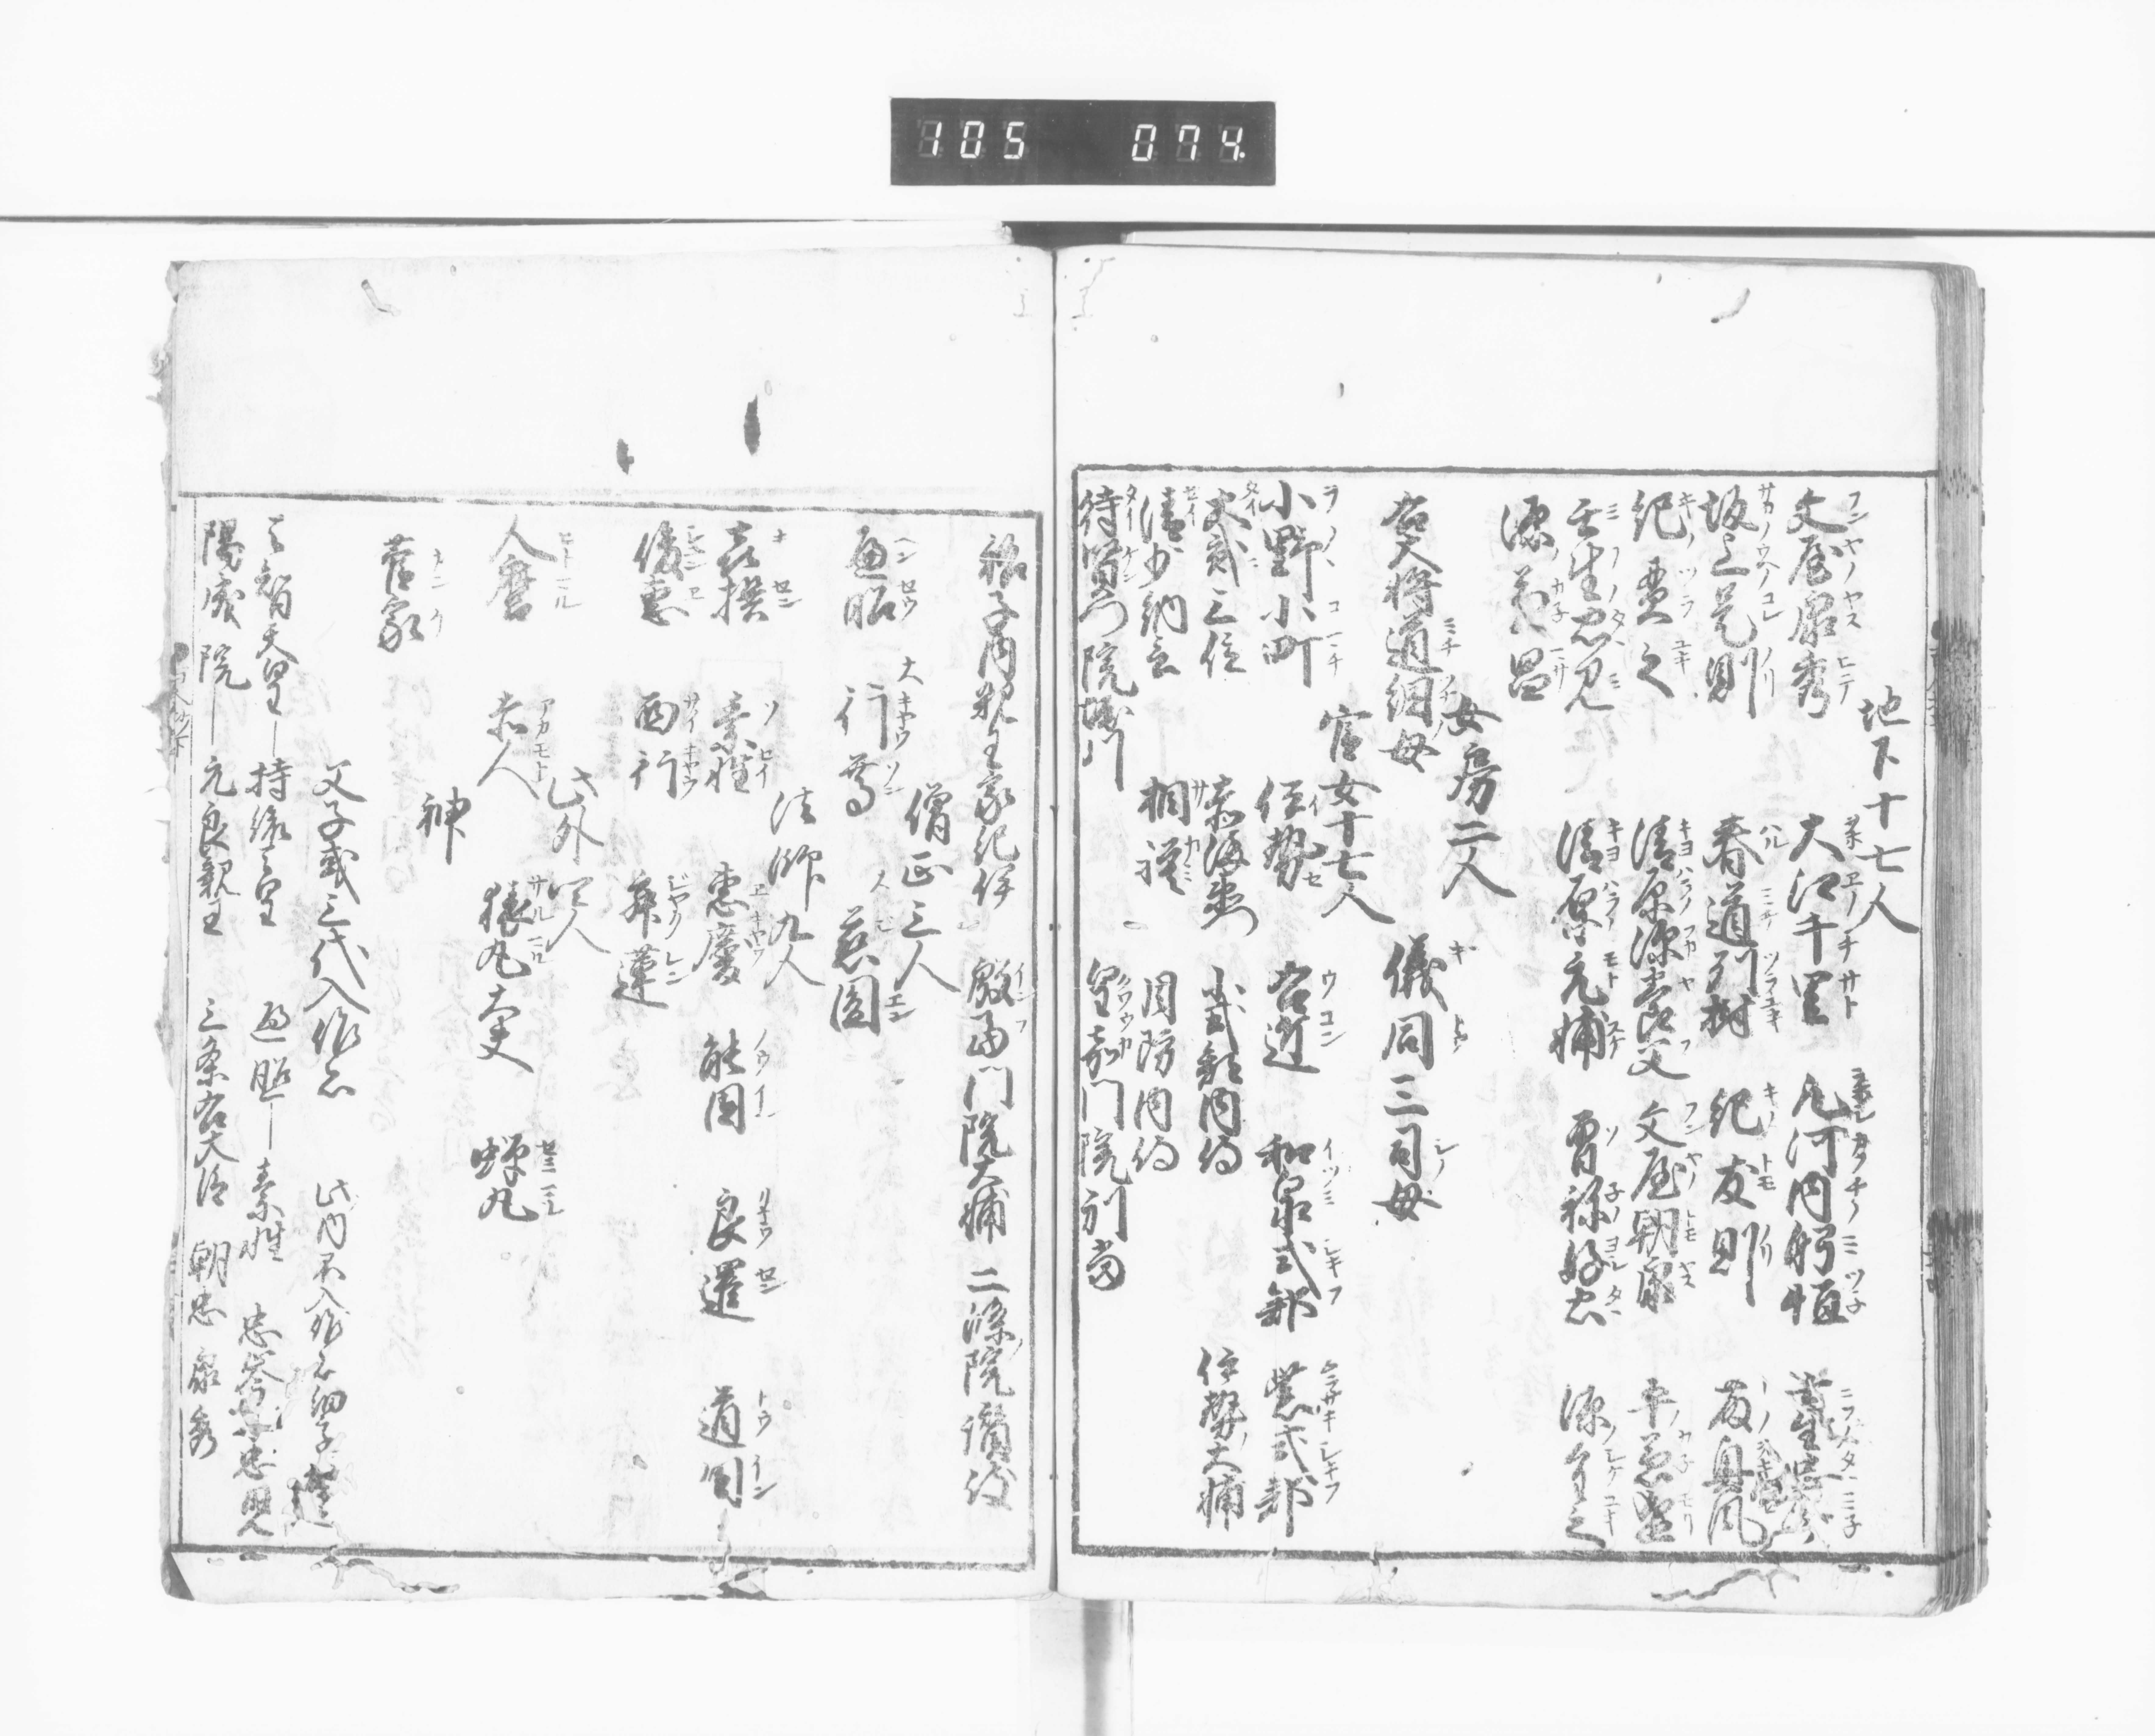 105 074.
地下十七人
文屋康秀 大江千里 凡河内躬恒 壬生忠岑
坂上是則 春道列樹 紀友則 藤興風
紀貫之 清原深養父 文屋朝康 平兼盛
壬生忠見 清原元輔 曽祢好忠 源重之
源兼昌
女房二人
右大将道綱母 儀同三司母
官女十七人
小野小町 伊勢 右近 和泉式部 紫式部
大弐三位 赤染 小式部内侍 伊勢大輔
清少納言 相模 周防内侍
待賢門院堀川 皇嘉門院別当
祐子内親王家紀伊 殷富門院大輔 二條院讃岐
僧正三人
遍昭 行尊 慈圓
法師九人
喜撰 素性 恵慶 能因 良暹 道因
俊恵 西行 寂蓮
此外四人
人麿 赤人 猿丸大夫 蝉丸
神
菅家
父子或三代入作者 此内不入作者細字
天智天皇 持統天皇 遍昭 素性 忠岑 忠見
陽成院 元良親王 三条右大臣 朝忠 康秀